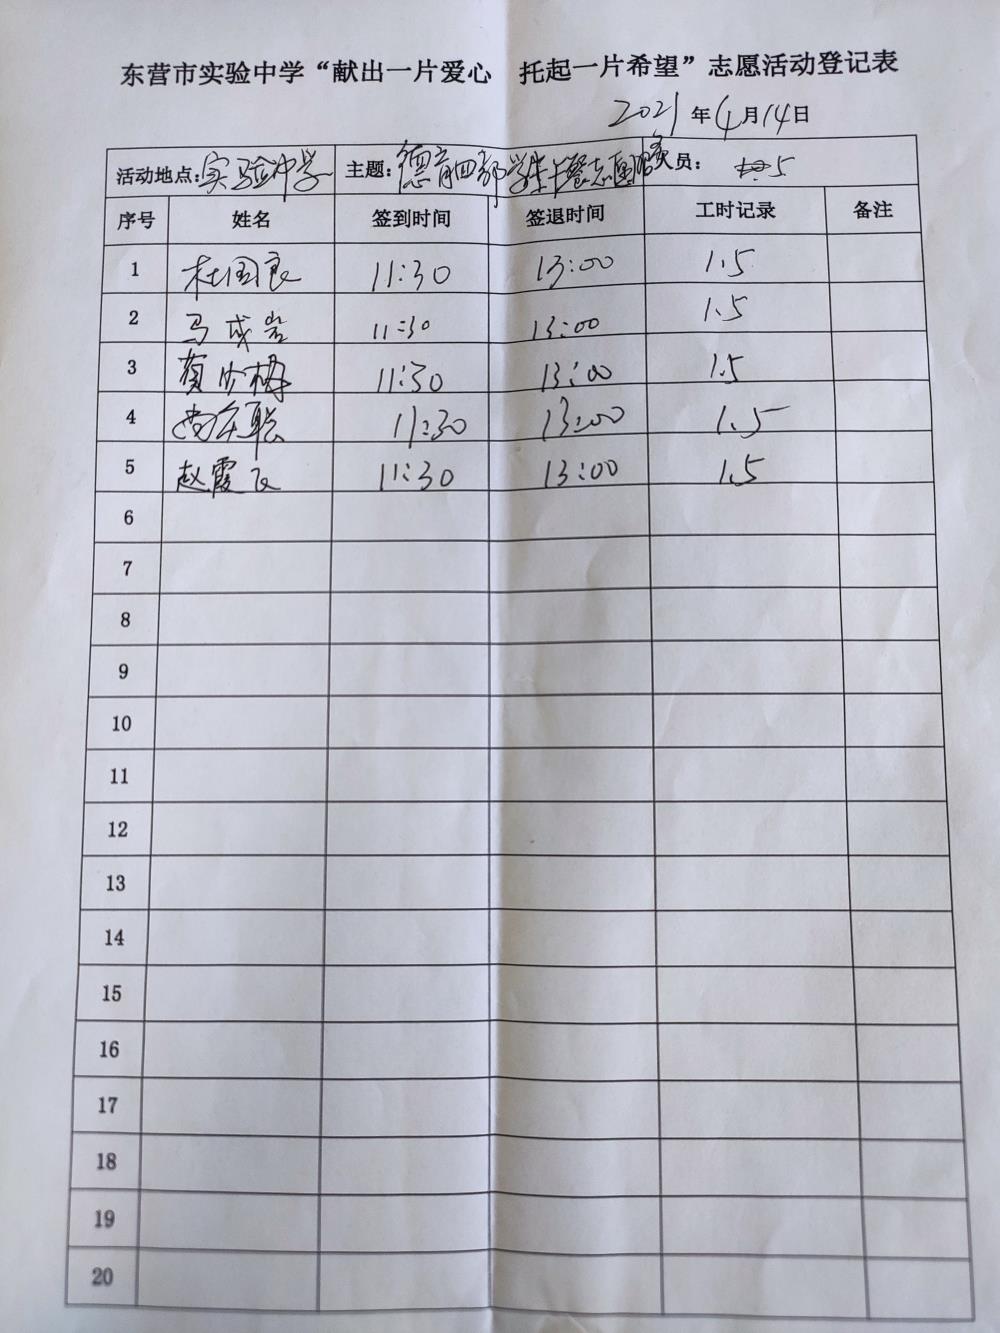 东营市实验中学“献出一片爱心 托起一片希望”志愿活动登记表
2021年4月14日
活动地点:实验中学 主题:德育四部学生午餐志愿服务 人员: 5
序号 姓名 签到时间 签退时间 工时记录 备注
1 杜国良 11:30 13:00 1.5
2 马成岩 11:30 13:00 1.5
3 11:30 13:00 1.5
4 11:30 13:00 1.5
5 赵霞飞 11:30 13:00 1.5
6
7
8
9
10
11
12
13
14
15
16
17
18
19
20